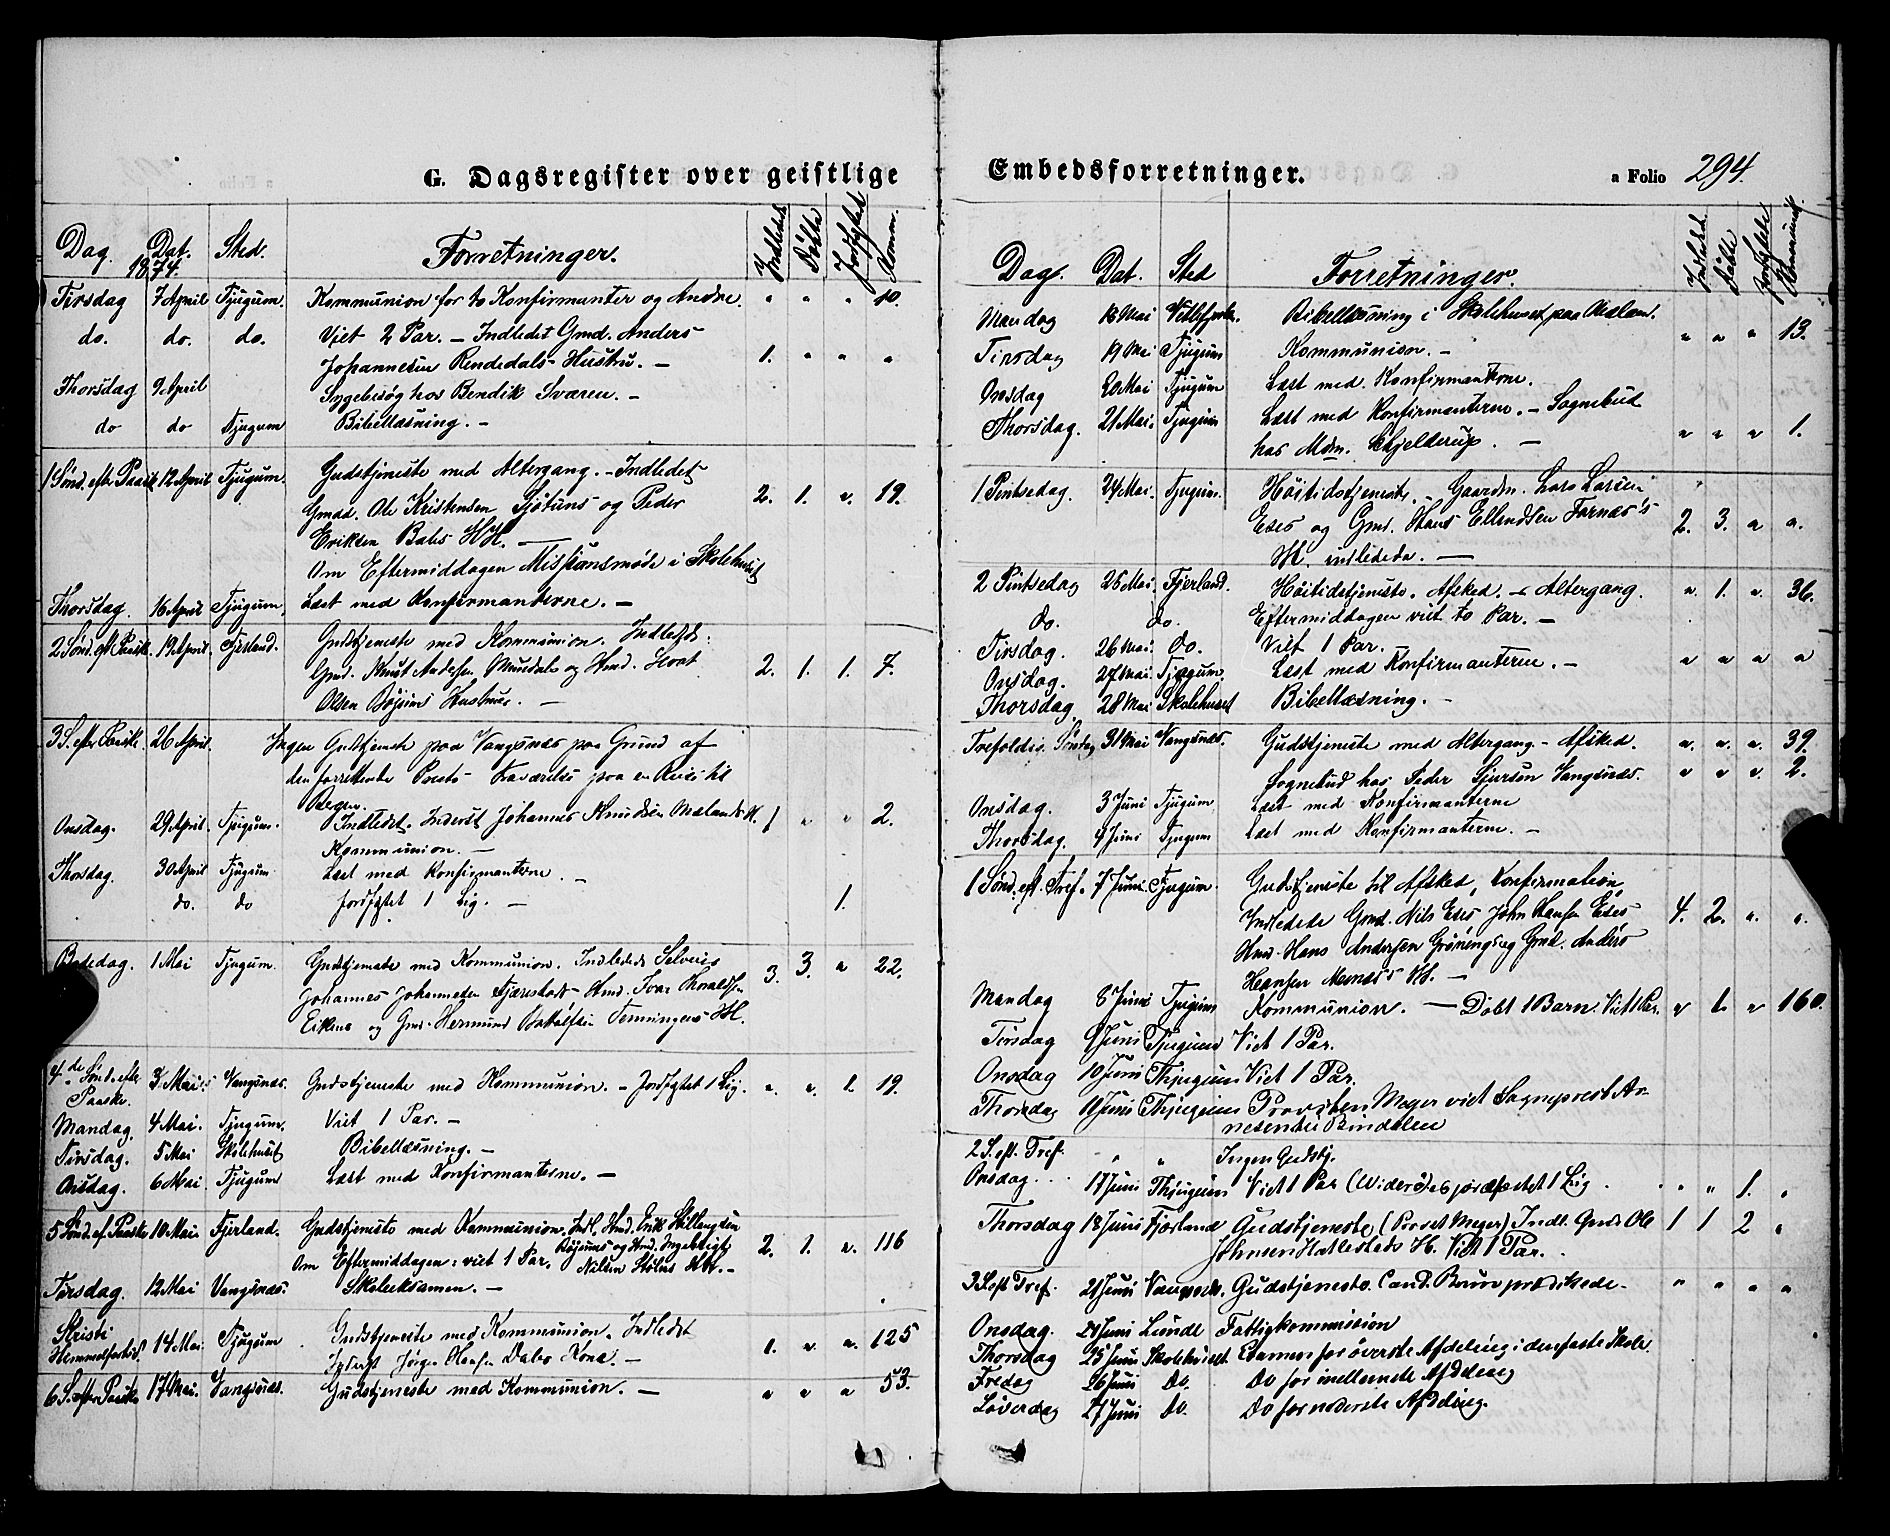 G. Dagsregister over geistlige
Dag. Dat. Sted. Forretninger. Indledet Døbte Jordfæstede Komm.
1874.
Tirsdag 7 April Tjugum. Kommunion for to Konfirmanter og Andre. " " " 10.
do. do. do. Viet 2 Par. – Indledet Gmd. Anders
Johannesen Rendedals Hustru. – 1. " " "
Thorsdag 9 April Sygebesøg hos Bendik Sværen. –
do do Tjugum Bibellæsning. –
1 Sønd. efter Paaske 12 April Tjugum. Gudstjeneste med Altergang. – Indledet
Gmd. Ole Kristensen Sjøtuns og Peder 2. 1. " 19.
Eriksen Bales HH. –
Om Eftermiddagen Missionsmøde i Skolehuset
Thorsdag. 16 April Tjugum. Læst med Konfirmanterne. –
2 Sønd. eft. Paaske. 19 April Fjerland. Gudstjeneste med Kommunion. Indledede:
Gmd. Knut Andersen Mundals og Hmd. 2. 1. 1. 7.
Olsen Bøjums Hustruer. –
3 S. efter Paaske. 26 April. Ingen Gudstjeneste paa Vangsnæs paa Grund af
den forrettende Prests Fraværelse paa en Reise til
Bergen.
Onsdag. 29 April. Tjugum. Indledet. Inderst Johannes Knudsen Mælands H. 1 " " 2.
Kommunion. –
Thorsdag. 30 April Tjugum Læst med Konfirmanterne. –
do. do Jordfæstet 1 Lig. – 1.
Bededag. 1 Mai Tjugum. Gudstjeneste med Kommunion. Indledede Selveier 3. 3. " 22.
Johannes Johannesen Tjærestads Hmd. Ivar
og Gmd. Hermund HH.
4de Sønd. efter 3 Mai Vangsnæs. Gudstjeneste med Kommunion. – Jordfæstet 1 Lig. " " 1. 19.
Paaske.
Mandag. 4 Mai. Tjugum. Viet 1 Par. –
Tirsdag. 5 Mai Skolehuset Bibellæsning. –
Onsdag. 6 Mai Tjugum Læst med Konfirmanterne. –
5 Sønd. ef. Paaske 10 Mai. Fjerland. Gudstjeneste med Kommunion. Indl. Hmd. Erik
Bøjums og Hmd. Ingebrigt 2. 1. " 116
Om Eftermiddagen: viet 1 Par. Nilsen Stølens
Tirsdag. 12 Mai Vangsnæs. Skoleeksamen. –
Kristi
Himmelfartsd. 14 Mai. Tjugum Gudstjeneste med Kommunion. Indledet
Inderst Jørgen Olsen Dales Kone. – 1. " " 125
6 S. efter Paaske 17 Mai. Vangsnæs. Gudstjeneste med Kommunion. – " " " 53.
Embedsforretninger. a Folio 294.
Dag. Dat. Sted Forretninger. Indledet Døbte Jordfæstede Kommunik.
Mandag 18 Mai Bibellæsning i Skolehuset paa Mæland.
Tirsdag 19 Mai Tjugum Kommunion. – " " " 13.
Onsdag 20 Mai Tjugum Læst med Konfirmanterne.
Thorsdag. 21 Mai. Tjugum Læst med Konfirmanterne. – Sognebud
hos Mdm. Skjelderup. – " " " 1.
1. Pintsedag. 24 Mai. Tjugum. Høitidstjeneste. – Gaardm. Lars Larsen
Eses og Gmd. Hans Ellendsen Farnæs's 2. 3. " "
HH. indledede. –
2 Pintsedag 25 Mai. Fjerland. Høitidstjeneste. Afsked. – Altergang. " 1. " 36.
Do. do. Eftermiddagen viet to Par. –
Tirsdag. 26 Mai. Do. Viet 1 Par.
Onsdag. 27 Mai. Tjugum. Læst med Konfirmanterne. – " " " "
Thorsdag. 28 Mai Skolehuset Bibellæsning. –
Trefoldig. Søndag 31 Mai Vangsnæs. Gudstjeneste med Altergang. – Afsked. " " " 39.
Sognebud hos Peder Sjursen Vangsnæs. " " " 2.
Onsdag. 3 Juni Tjugum Læst med Konfirmanterne
Thorsdag. 4 Juni Tjugum Læst med Konfirmanterne. –
1 Sønd. eft. Tref. 7 Juni. Tjugum. Gudstjeneste til Afsked, Konfirmation,
Indledede Gmd. Nils Eses John Hansen Eses 4. 2. " "
Hmd. Hans Andersen Grønings og Gmd. Anders
Hansen Menæs's HH. –
Mandag 8 Juni Tjugum Kommunion. – Døbt 1 Barn. Viet 1 Par. " 1. " 160.
Tirsdag 9 Juni Tjugum Viet 1 Par.
Onsdag 10 Juni Thjugum Viet 1 Par.
Thorsdag 11 Juni Thjugum Provsten Meyer viet Sogneprest Ar-
nesen til Bindalen
2 S. eft. Tref. " " Ingen Gudstj.
Onsdag 17 Juni Thjugum Viet 1 Par jordfæstet 1 Lig. " " 1. "
Thorsdag 18 Juni Fjørland Gudstjeneste (Provst Meyer) Indl. Gmd. Ole 1 1 2 "
Johnsen Hatlestads H. Viet 1 Par.
3 S. eft Tref. 21 Juni Vangsnæs. Gudstjeneste. Cand. Bruun prædikede. " " " "
Onsdag. 24 Juni Lunde Fattigkommission
Thorsdag 25 Juni Skolehuset. Examen for øverste Afdeling i den faste Skole.
Fredag 26 Juni Do. Do for mellemste Afdeling
Løverdag 27 Juni Do. Do for nederste Afdeling.